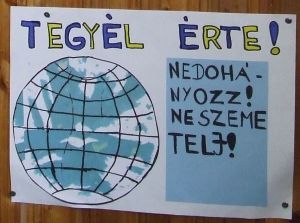 TÈGYÈL ÈRTE!
NEDOHÁ-
NYOZZ!
NE SZEME
TELJ!